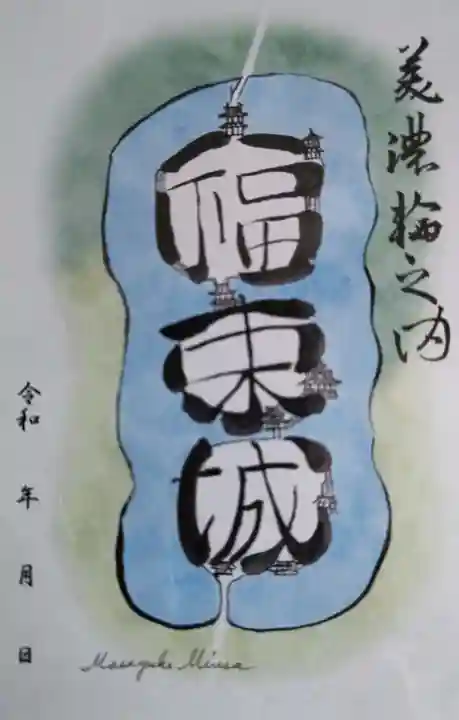 美濃輪之内
福束城
令和 年 月 日